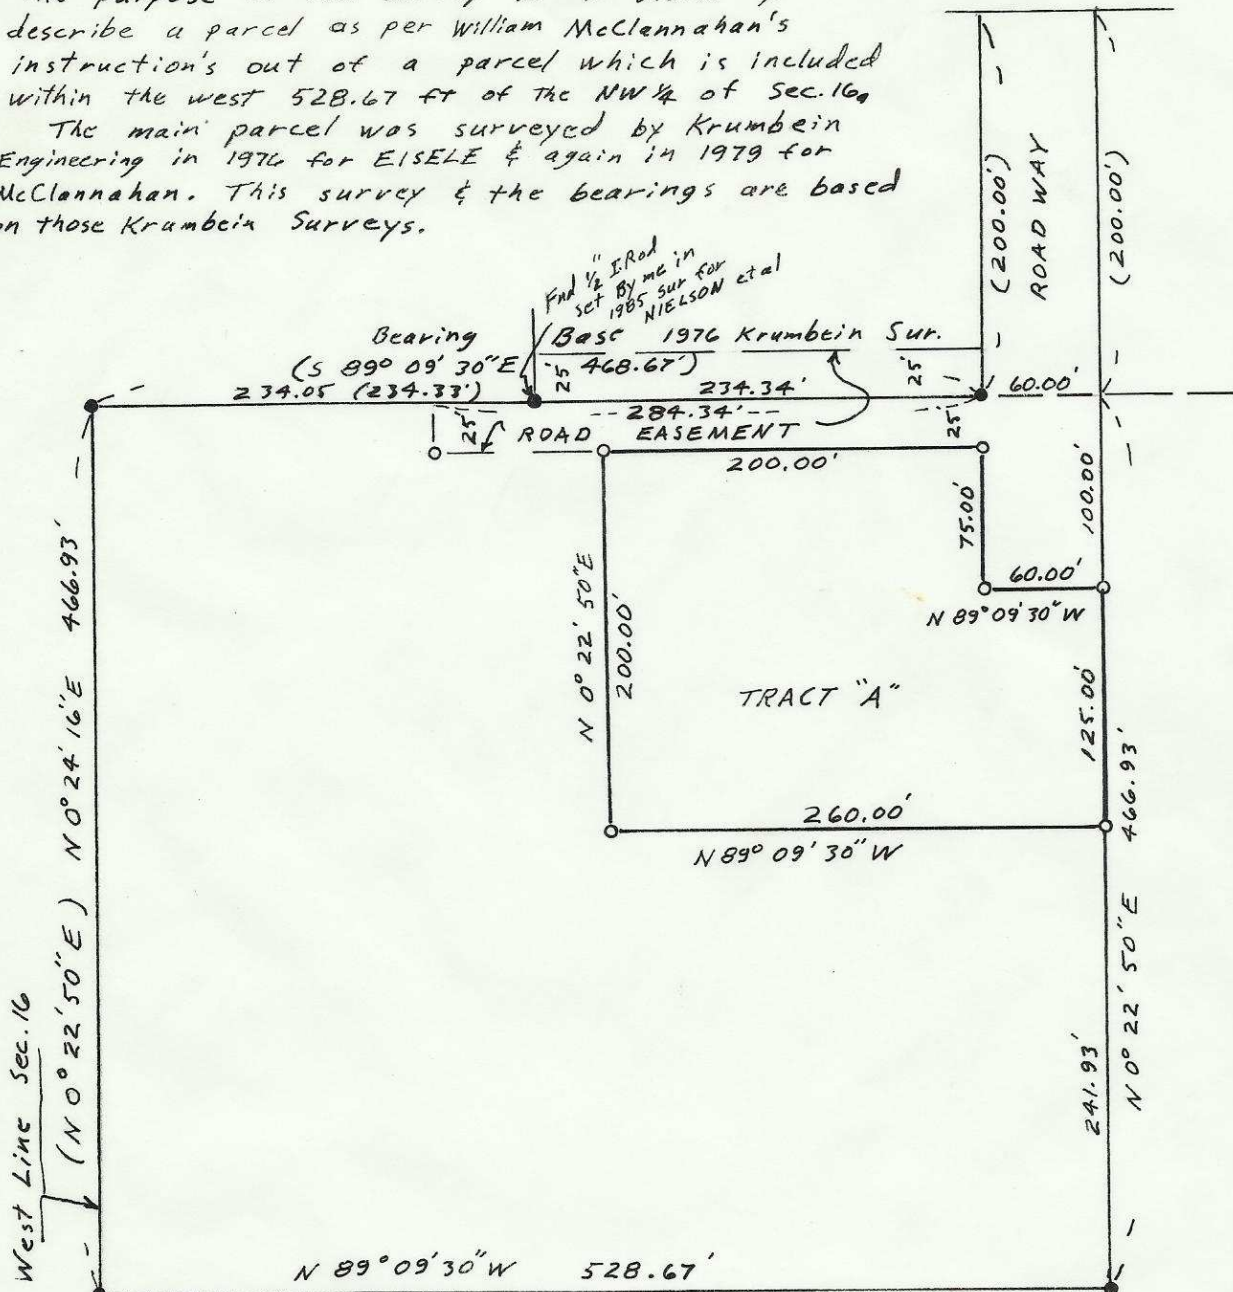 describe a parcel as per William McClannahan's
instruction's out of a parcel which is included
within the west 528.67 ft of the NW ¼ of Sec. 16.
The main parcel was surveyed by Krumbein
Engineering in 1976 for EISELE & again in 1979 for
McClannahan. This survey & the bearings are based
on those Krumbein Surveys.
(200.00')
ROAD WAY
(200.00')
Fnd ½" I.Rod
set By me in
1985 sur for
NIELSON et al
Bearing Base 1976 Krumbein Sur.
(S 89° 09' 30" E 468.67')
25'
25'
234.05 (234.33') 234.34' 60.00'
284.34'
25' ROAD EASEMENT 25'
200.00'
75.00'
100.00'
60.00'
N 89° 09' 30" W
N 0° 22' 50" E
200.00'
TRACT "A"
125.00'
260.00'
N 89° 09' 30" W
(N 0° 22' 50" E) N 0° 24' 16" E 466.93'
N 0° 22' 50" E 466.93'
241.93'
West Line Sec. 16
N 89° 09' 30" W 528.67'